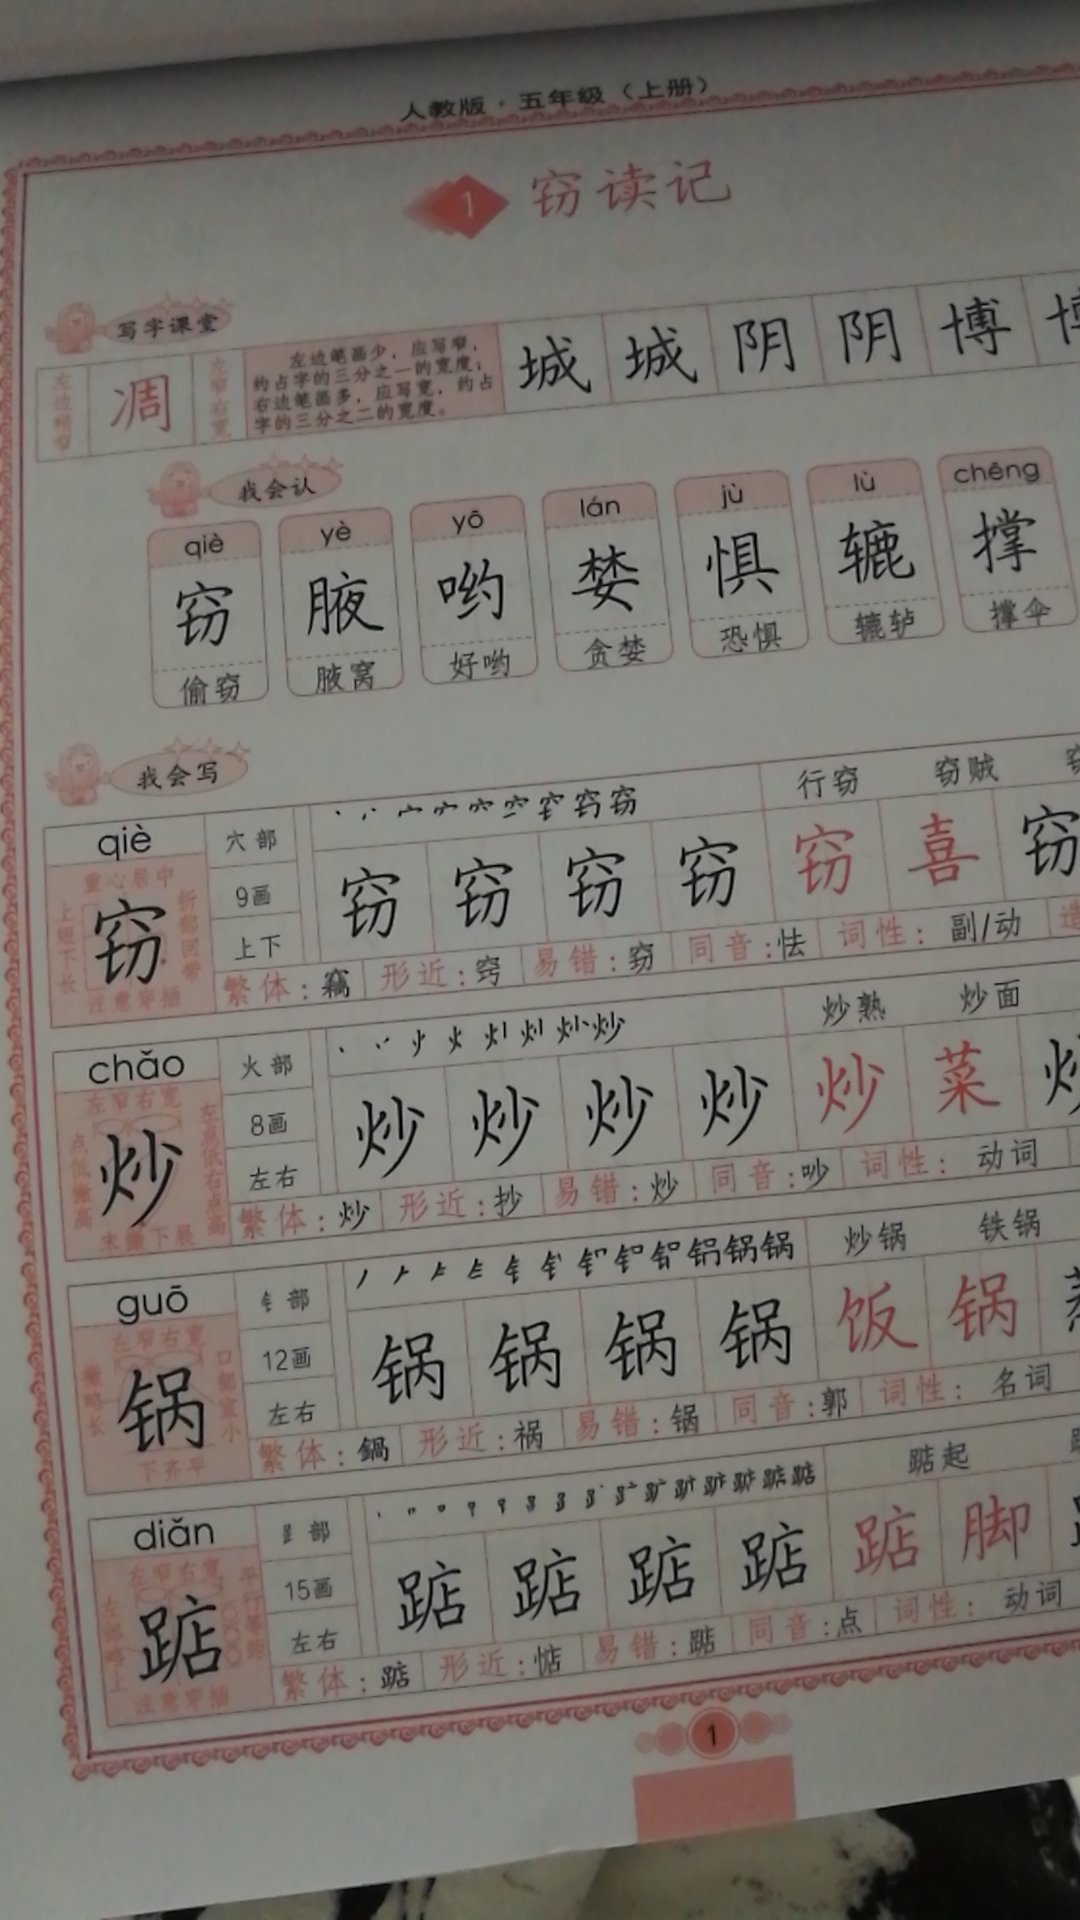 人教版·五年级（上册）
1 窃读记
写字课堂
左边稍窄 凋 左窄右宽
左边笔画少，应写窄，
约占字的三分之一的宽度；
右边笔画多，应写宽，约占
字的三分之二的宽度。
城 城 阴 阴 博
我会认
qiè yè yō lán jù lù chēng
窃 腋 哟 婪 惧 辘 撑
偷窃 腋窝 好哟 贪婪 恐惧 辘轳 撑伞
我会写
qiè 穴部 行窃 窃贼
重心居中
上短下长 窃 折部回带
注意穿插
9画
上下
窃 窃 窃 窃 窃 喜 窃
繁体：竊 形近：窍 易错：窃 同音：怯 词性：副/动 造
chǎo 火部 炒熟 炒面
左窄右宽
点低撇高 炒 左点低右点高
末撇下展
8画
左右
炒 炒 炒 炒 炒 菜
繁体：炒 形近：抄 易错：炒 同音：吵 词性：动词
guō 钅部 炒锅 铁锅
左窄右宽
撇略长 锅 口部宜小
下齐平
12画
左右
锅 锅 锅 锅 饭 锅
繁体：鍋 形近：祸 易错：锅 同音：郭 词性：名词
diǎn 部 踮起
左窄右宽
左部略上 踮 平行等距
注意穿插
15画
左右
踮 踮 踮 踮 踮 脚
繁体：踮 形近：惦 易错：踮 同音：点 词性：动词
1